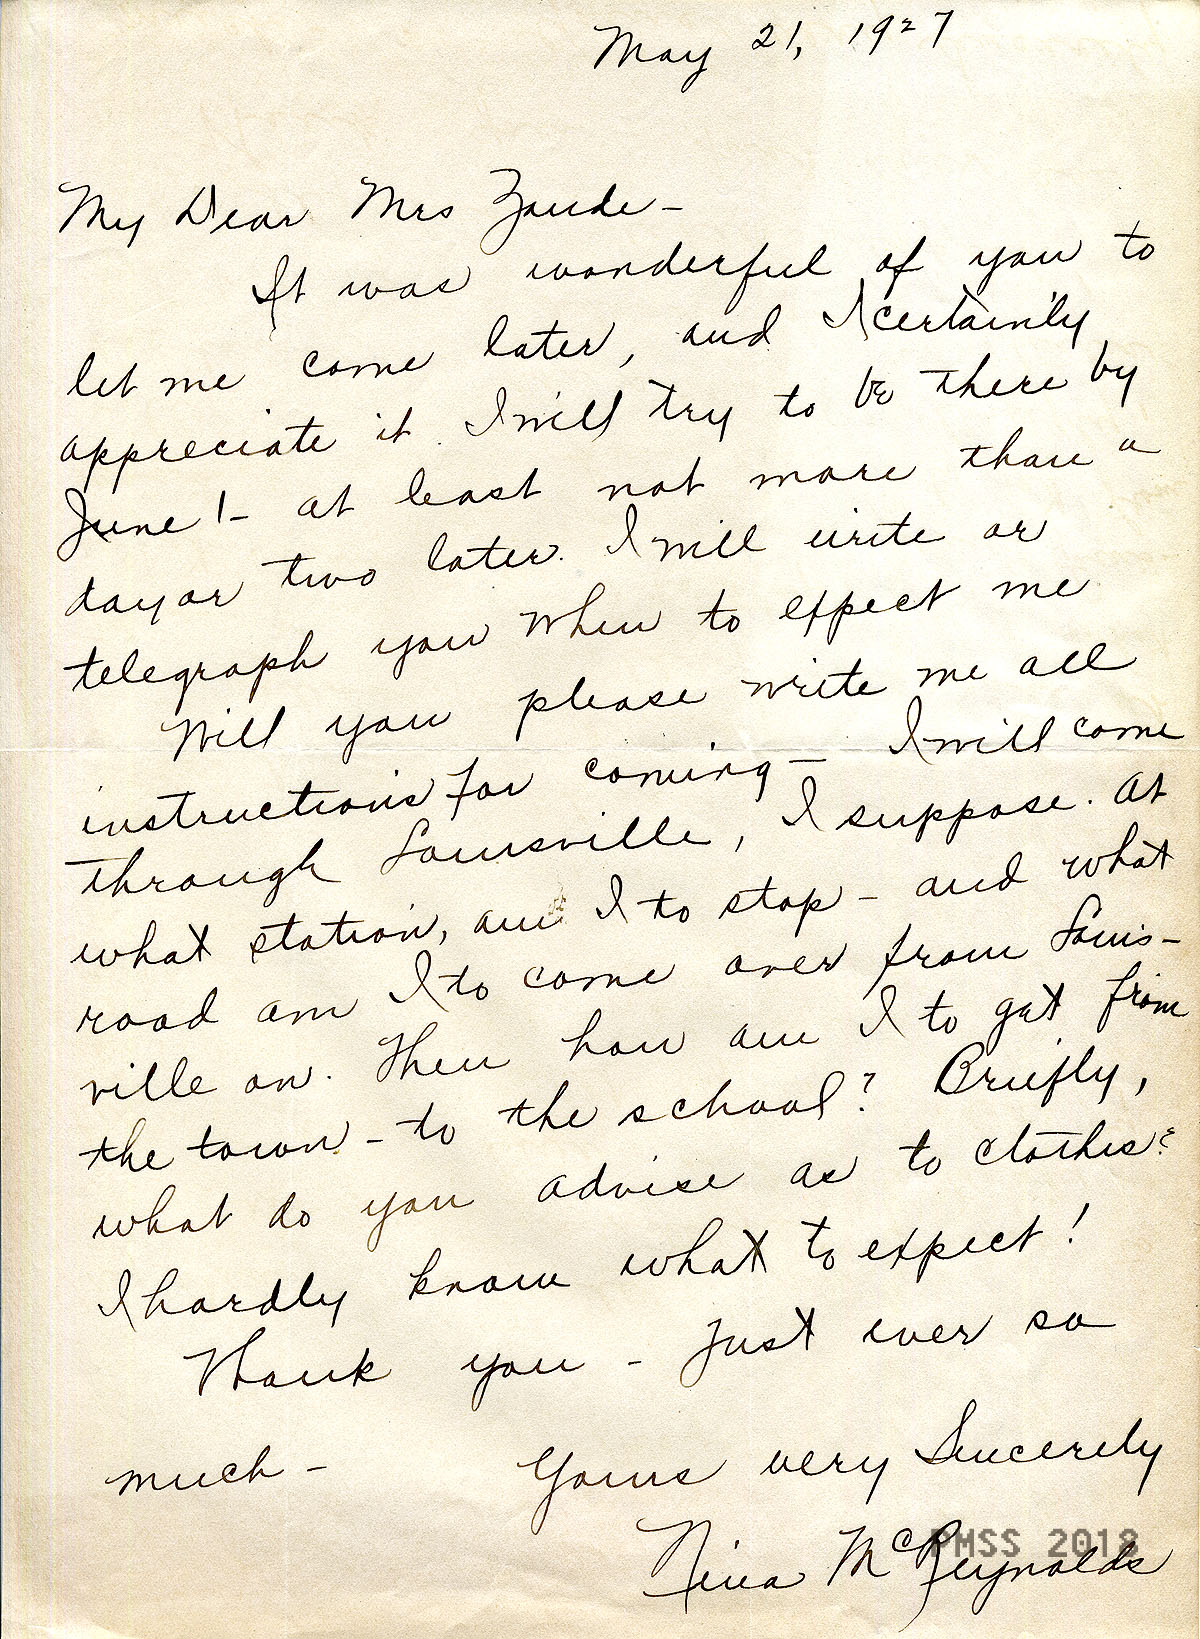 May 21, 1927
My Dear Mrs Zande -
It was wonderful of you to
let me come later, and I certainly
appreciate it. I will try to be there by
June 1 - at least not more than a
day or two later. I will write or
telegraph you when to expect me
Will you please write me all
instructions for coming - I will come
through Louisville, I suppose. At
what station, am I to stop - and what
road am I to come over from Louis-
ville on. Then how am I to get from
the town - to the school? Briefly,
what do you advise as to clothes?
I hardly know what to expect!
Thank you - just ever so
much - Yours very Sincerely
Nina McReynolds
PMSS 2018